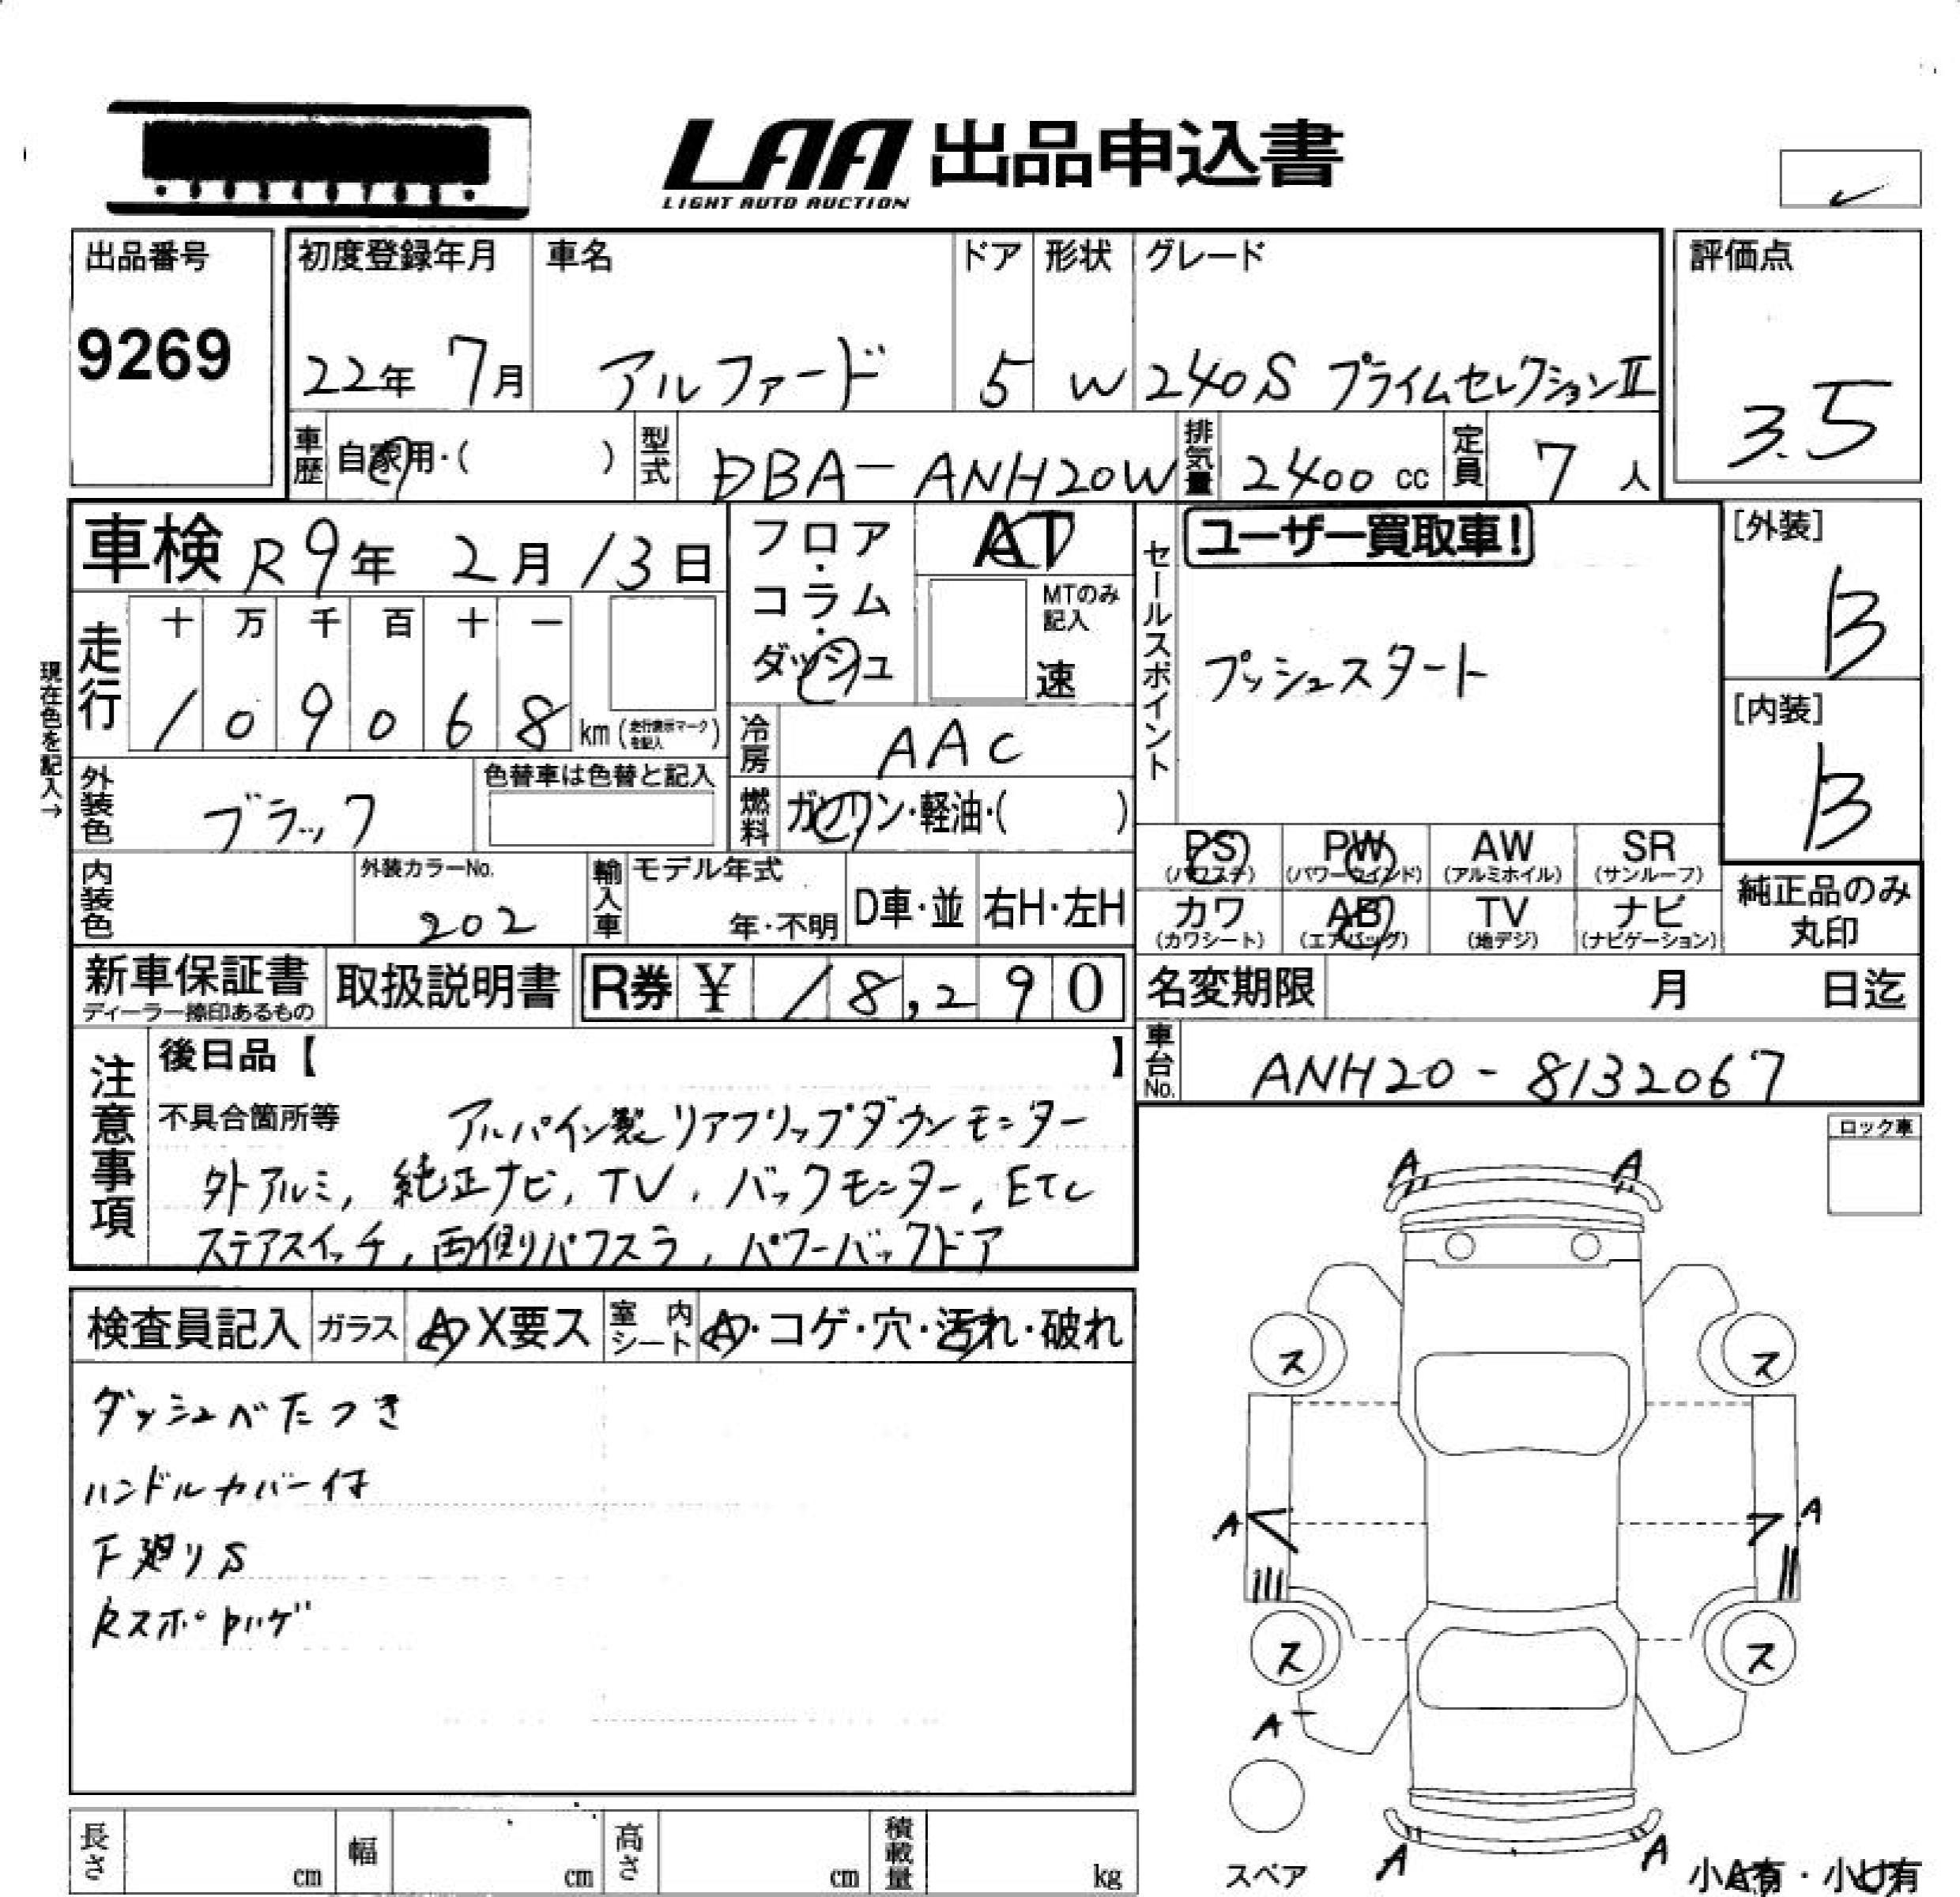 LAA 出品申込書
LIGHT AUTO AUCTION
出品番号
9269
初度登録年月
22年 7月
車名
アルファード
ドア
5
形状
W
グレード
240S プライムセレクションⅡ
評価点
3.5
車歴 自家用・( )
型式 DBA-ANH20W
排気量 2400 cc
定員 7 人
車検 R9年 2月 13日
現在色を記入→
走行
十 万 千 百 十 一
1 0 9 0 6 8 km (走行表示マークを記入)
フロア・コラム・ダッシュ
AT
MTのみ記入
速
冷房 AAC
燃料 ガソリン・軽油・( )
セールスポイント
ユーザー買取車!
プッシュスタート
[外装]
B
[内装]
B
外装色 ブラック
色替車は色替と記入
内装色
外装カラーNo.
202
輸入車
モデル年式
年・不明
D車・並
右H・左H
PS (パワステ)
PW (パワーウインド)
AW (アルミホイル)
SR (サンルーフ)
カワ (カワシート)
AB (エアバッグ)
TV (地デジ)
ナビ (ナビゲーション)
純正品のみ丸印
新車保証書
ディーラー捺印あるもの
取扱説明書
R券 ¥ 18,290
名変期限 月 日迄
車台No. ANH20-8132067
注意事項
後日品【 】
不具合箇所等 アルパイン製リアフリップダウンモニター
外アルミ, 純正ナビ, TV, バックモニター, ETC
ステアスイッチ, 両側パワスラ, パワーバックドア
ロック車
検査員記入
ガラス A・X要ス
室内シート A・コゲ・穴・汚れ・破れ
ダッシュベたつき
ハンドルカバー付
下廻りS
RスポPハゲ
A A
ス ス
A A
ス ス
A
A A
スペア
小A有・小U有
長さ cm
幅 cm
高さ cm
積載量 kg